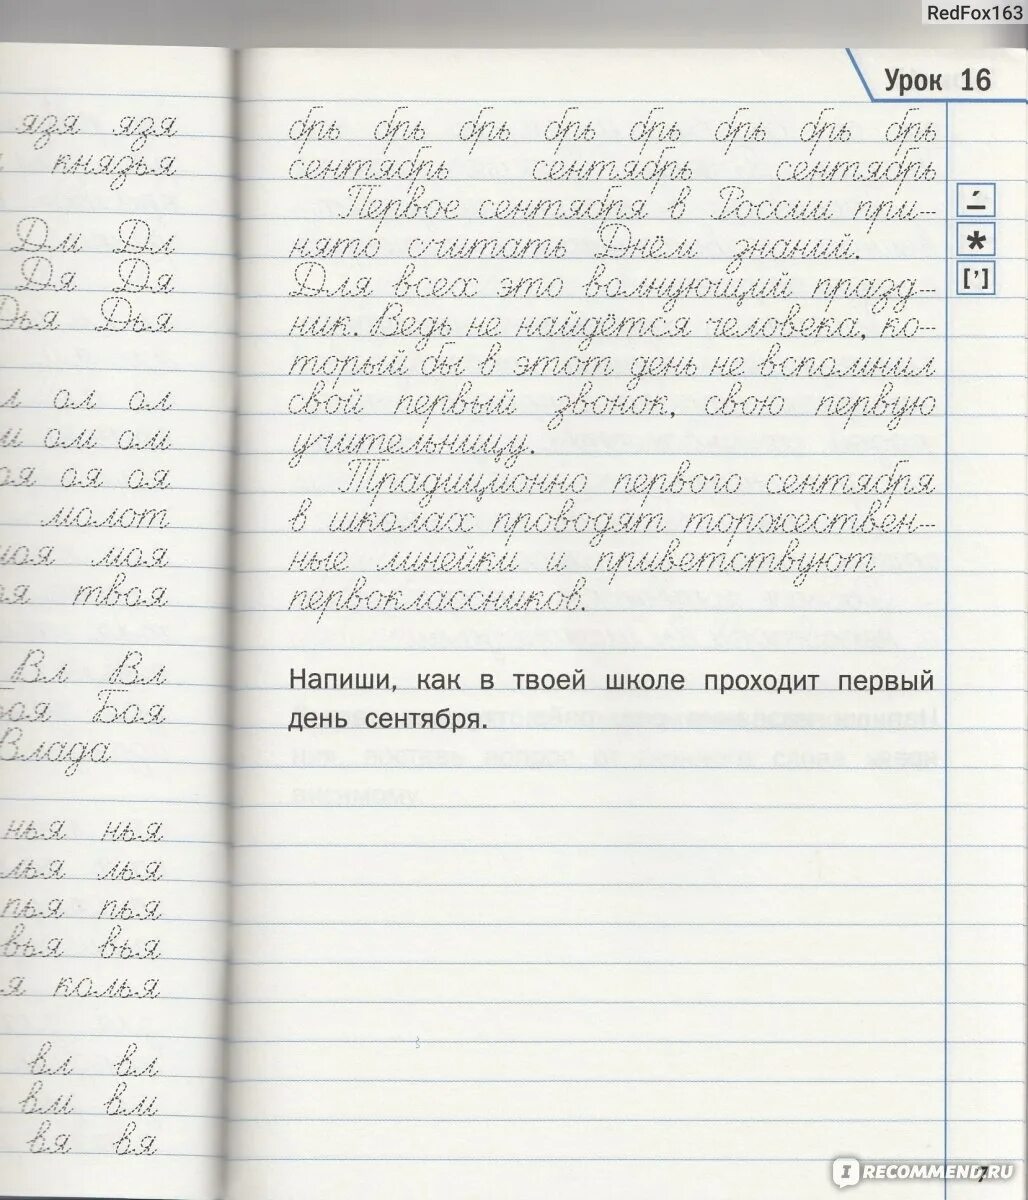 RedFox163
язя язя
князья
Дм Дл
Дя Дя
Дья Дья
ол ол
ом ом ом
оя оя
молот
моя
твоя
Вл Вл
Боя
Влада
нья нья
лья лья
пья пья
вья вья
колья
вл вл
вм вм
вя вя
Урок 16
брь брь брь брь брь брь брь брь
сентябрь сентябрь сентябрь
Первое сентября в России при-
нято считать Днём знаний.
Для всех это волнующий празд-
ник. Ведь не найдётся человека, ко-
торый бы в этот день не вспомнил
свой первый звонок, свою первую
учительницу.
Традиционно первого сентября
в школах проводят торжествен-
ные линейки и приветствуют
первоклассников.
*
[']
Напиши, как в твоей школе проходит первый
день сентября.
7
IRECOMMEND.RU